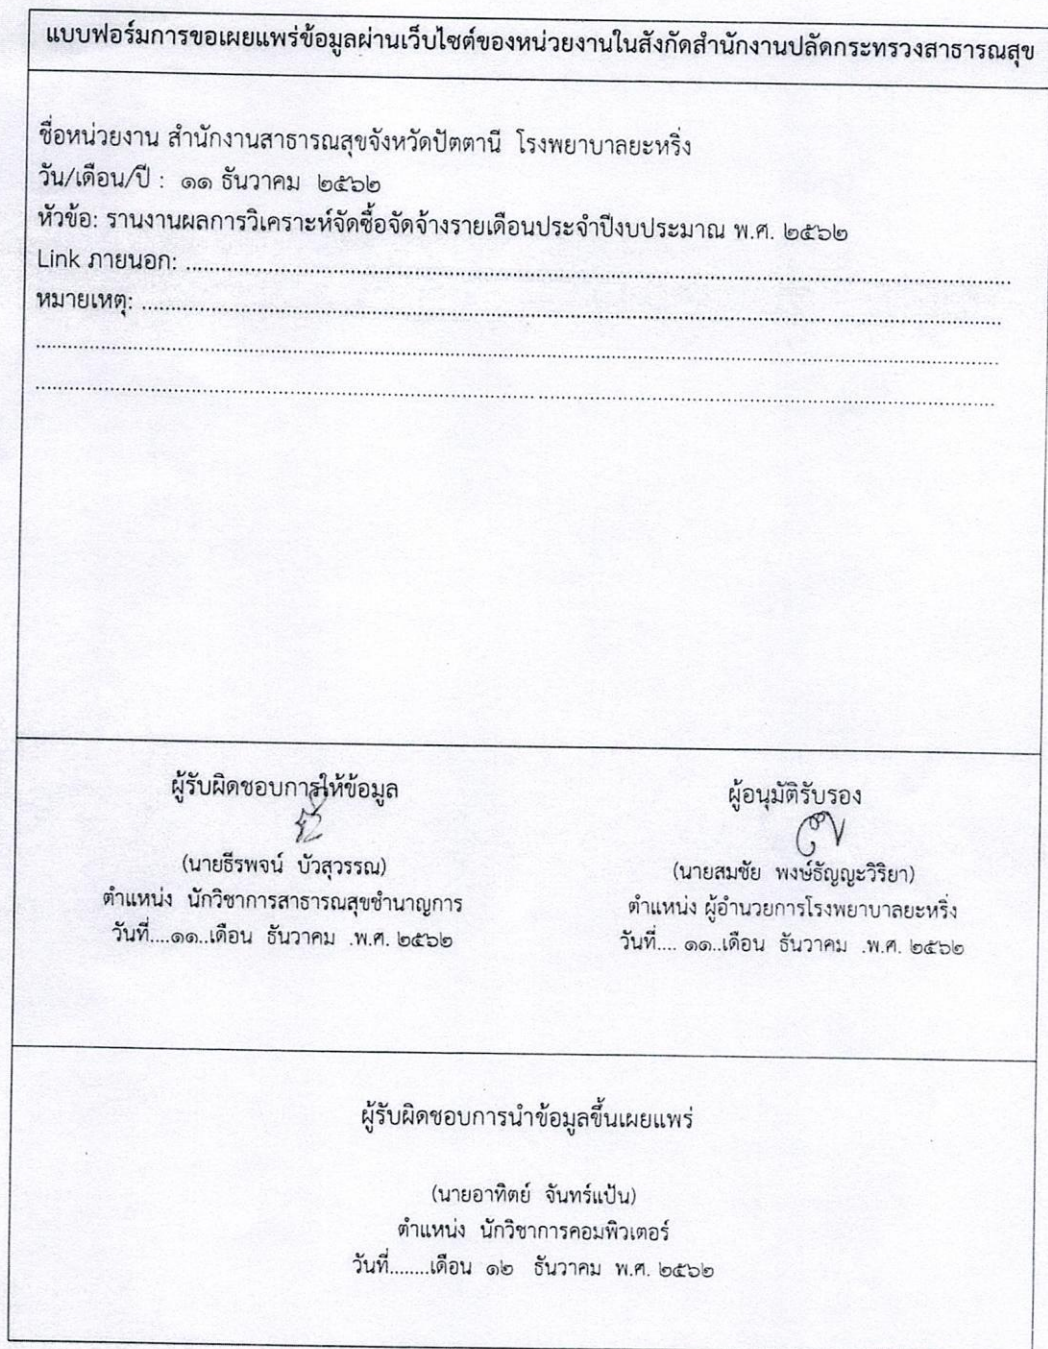 แบบฟอร์มการขอเผยแพร่ข้อมูลผ่านเว็บไซต์ของหน่วยงานในสังกัดสำนักงานปลัดกระทรวงสาธารณสุข
ชื่อหน่วยงาน สำนักงานสาธารณสุขจังหวัดปัตตานี โรงพยาบาลยะหริ่ง
วัน/เดือน/ปี : ๑๑ ธันวาคม ๒๕๖๒
หัวข้อ: รานงานผลการวิเคราะห์จัดซื้อจัดจ้างรายเดือนประจำปีงบประมาณ พ.ศ. ๒๕๖๒
Link ภายนอก: ........................................................................
หมายเหตุ: ........................................................................
........................................................................
........................................................................
ผู้รับผิดชอบการให้ข้อมูล
(นายธีรพจน์ บัวสุวรรณ)
ตำแหน่ง นักวิชาการสาธารณสุขชำนาญการ
วันที่....๑๑..เดือน ธันวาคม .พ.ศ. ๒๕๖๒
ผู้อนุมัติรับรอง
(นายสมชัย พงษ์ธัญญะวิริยา)
ตำแหน่ง ผู้อำนวยการโรงพยาบาลยะหริ่ง
วันที่.... ๑๑..เดือน ธันวาคม .พ.ศ. ๒๕๖๒
ผู้รับผิดชอบการนำข้อมูลขึ้นเผยแพร่
(นายอาทิตย์ จันทร์แป้น)
ตำแหน่ง นักวิชาการคอมพิวเตอร์
วันที่........เดือน ๑๒ ธันวาคม พ.ศ. ๒๕๖๒